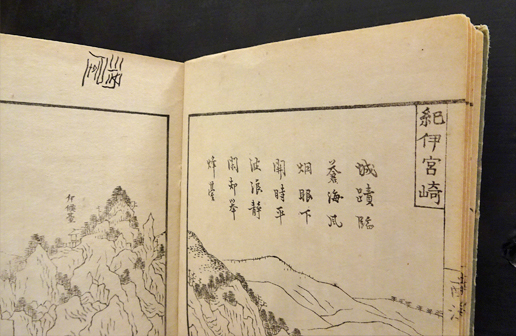 紀伊宮崎
城蹟臨
蒼海風
烟眼下
開時平
波浪静
閑却挙
烽臺